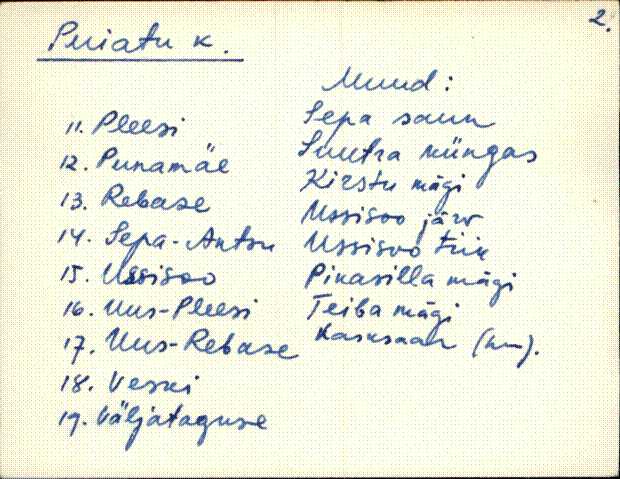 2.
Puiatu k.
11. Pleesi
12. Punamäe
13. Rebase
14. Sepa-Antsu
15. Ussisoo
16. Uus-Pleesi
17. Uus-Rebase
18. Veski
19. Väljataguse
Muud:
Sepa saun
Suutra küngas
Kirstu mägi
Ussisoo järv
Ussisoo tiik
Pikasilla mägi
Teiba mägi